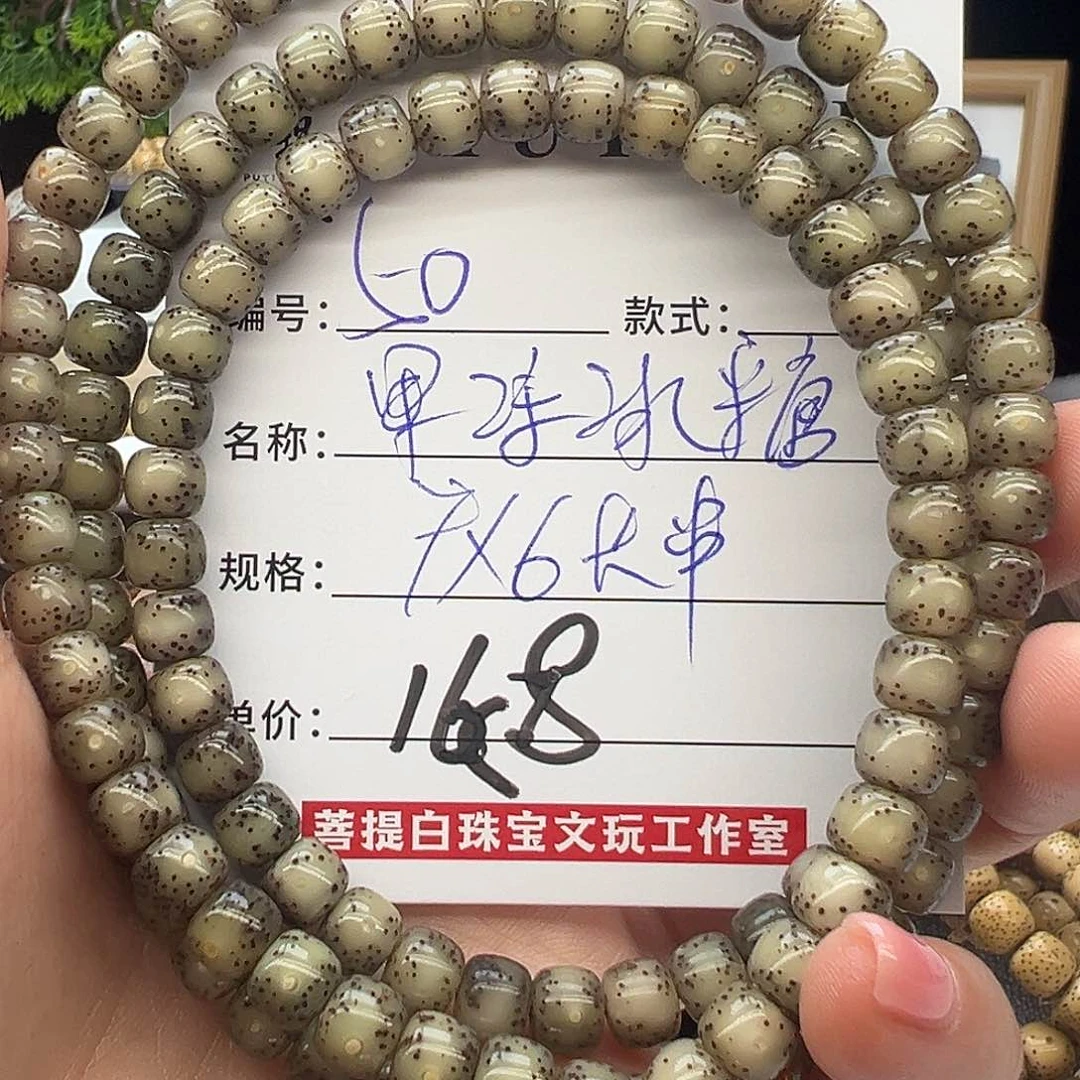 编号: 50 款式:
名称: 单珠冰糖
规格: 7X6大串
单价: 168
菩提白珠宝文玩工作室